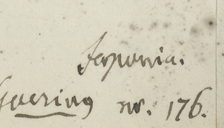 Japonia.
Goering nr. 176.